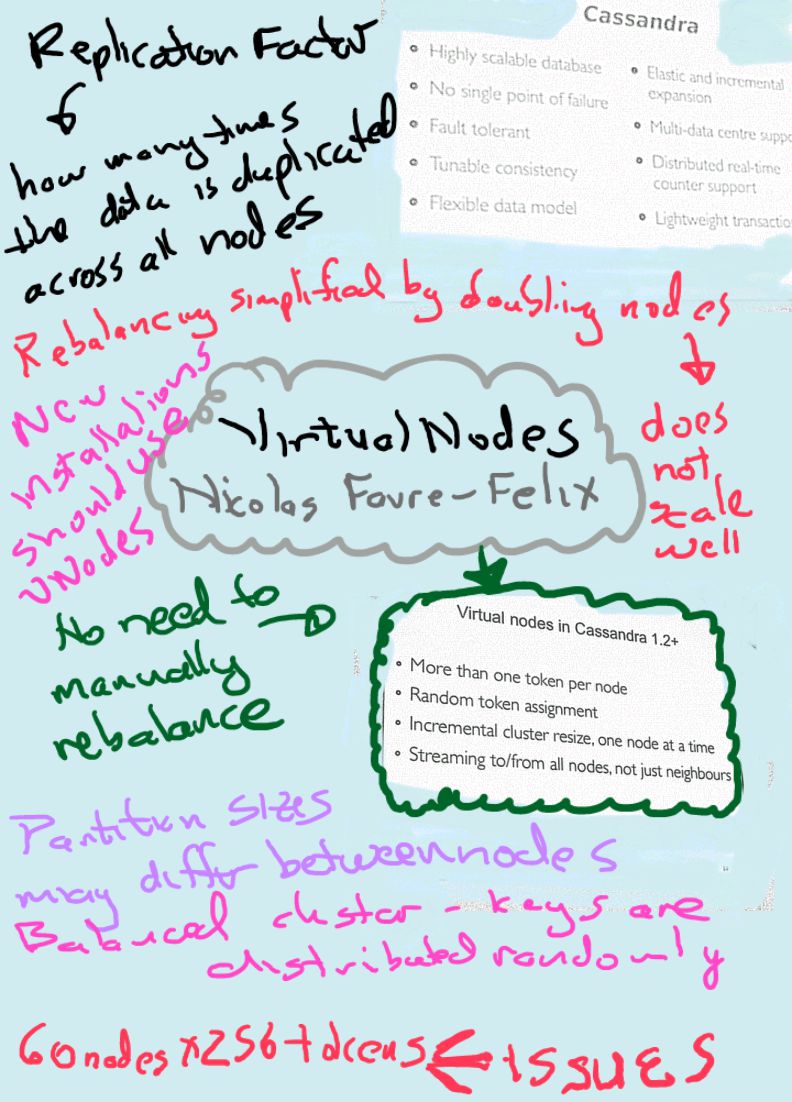 Replication Factor
how many times
the data is duplicated
across all nodes
Cassandra
• Highly scalable database
• No single point of failure
• Fault tolerant
• Tunable consistency
• Flexible data model
• Elastic and incremental
expansion
• Multi-data centre suppo
• Distributed real-time
counter support
• Lightweight transactio
Rebalancing simplified by doubling nodes
does
not
scale
well
New
installations
should use
vNodes
Virtual Nodes
Nicolas Favre-Felix
No need to
manually
rebalance
Virtual nodes in Cassandra 1.2+
• More than one token per node
• Random token assignment
• Incremental cluster resize, one node at a time
• Streaming to/from all nodes, not just neighbours
Partition sizes
may differ between nodes
Balanced cluster - keys are
distributed randomly
60 nodes x 256 tokens ← issues